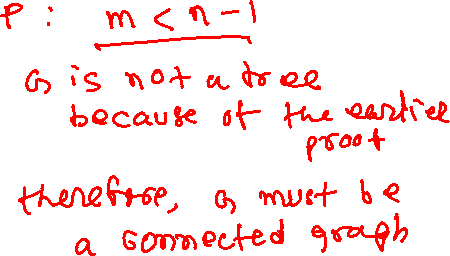 P : m < n - 1
G is not a tree
because of the earlier
proof
therefore, G must be
a connected graph